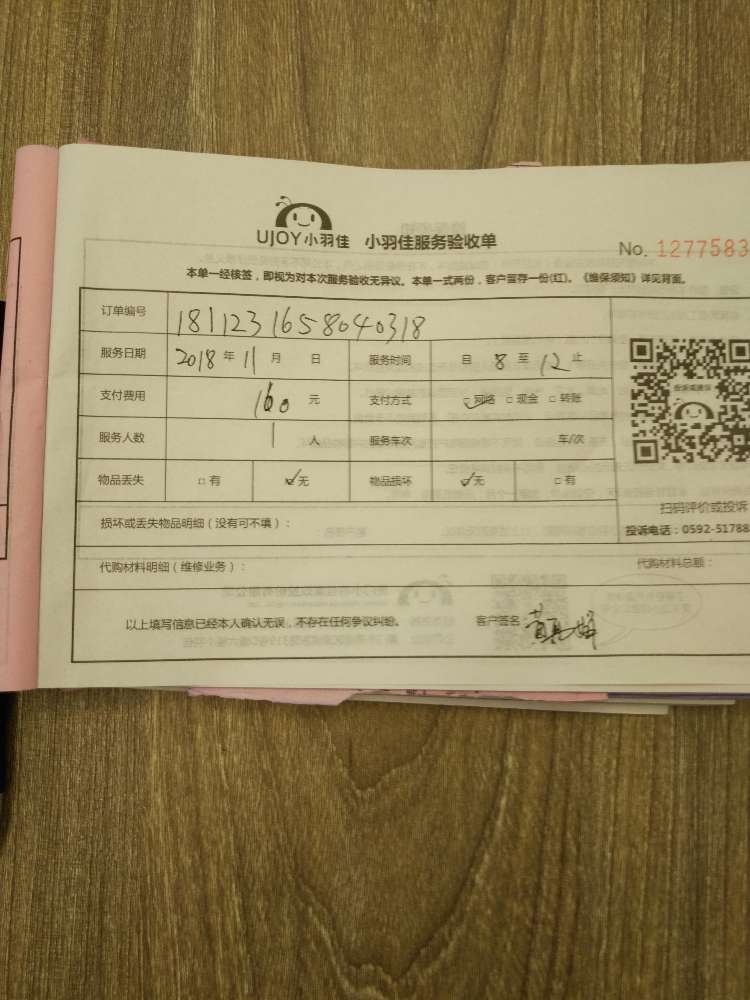 UJOY小羽佳 小羽佳服务验收单
No. 1277583
本单一经核签，即视为对本次服务验收无异议。本单一式两份，客户留存一份(红)。《维保须知》详见背面。
订单编号 1811231658040318
服务日期 2018年11月 日 服务时间 自 8 至 12 止
支付费用 160 元 支付方式 ☑网络 □现金 □转账
服务人数 1 人 服务车次 车/次
投诉或建议
物品丢失 □有 ☑无 物品损坏 ☑无 □有
扫码评价或投诉
损坏或丢失物品明细（没有可不填）：
投诉电话：0592-51788
代购材料明细（维修业务）： 代购材料总额：
以上填写信息已经本人确认无误，不存在任何争议纠纷。 客户签名